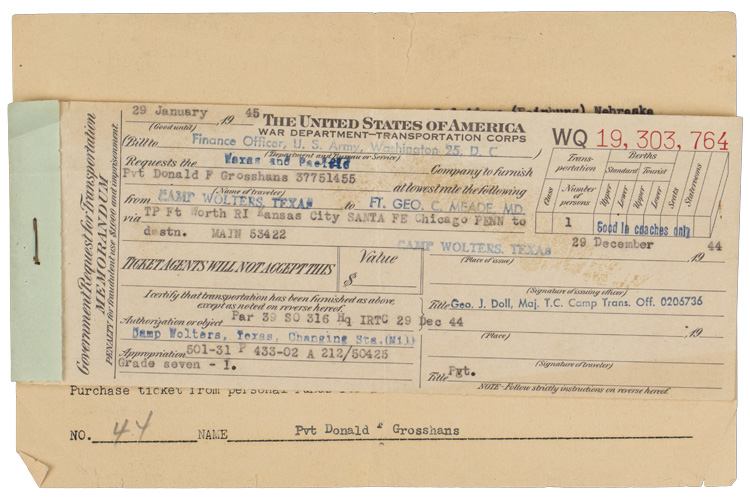 (Fairbury) Nebraska
Government Request for Transportation
MEMORANDUM
PENALTY for fraudulent use $5000 and imprisonment.
29 January , 19 45
(Good until)
THE UNITED STATES OF AMERICA
WAR DEPARTMENT—TRANSPORTATION CORPS
WQ 19,303,764
(Bill to Finance Officer, U. S. Army, Washington 25, D. C )
(Department and Bureau or Service)
Requests the Texas and Pacific Company to furnish
Pvt Donald F Grosshans 37751455 at lowest rate the following
(Name of traveler)
from CAMP WOLTERS, TEXAS to FT. GEO. C. MEADE MD.
via TP Ft Worth RI Kansas City SANTA FE Chicago PENN to
destn. MAIN 53422
Trans-
portation
Berths
Standard Tourist
Class
Number of persons
Upper
Lower
Upper
Lower
Seats
Staterooms
1 Good in coaches only
CAMP WOLTERS, TEXAS 29 December , 19 44
(Place of issue)
TICKET AGENTS WILL NOT ACCEPT THIS
Value
$
(Signature of issuing officer)
I certify that transportation has been furnished as above,
except as noted on reverse hereof.
Title Geo. J. Doll, Maj. T.C. Camp Trans. Off. 0206736
Authorization or object Par 39 SO 316 Hq IRTC 29 Dec 44
Camp Wolters, Texas, Changing Sta. (Mil)
, 19
(Place)
Appropriation 501-31 P 433-02 A 212/50425
Grade seven - 1.
(Signature of traveler)
Title Pvt.
NOTE - Follow strictly instructions on reverse hereof.
Purchase ticket from personal
NO. 44 NAME Pvt Donald F Grosshans